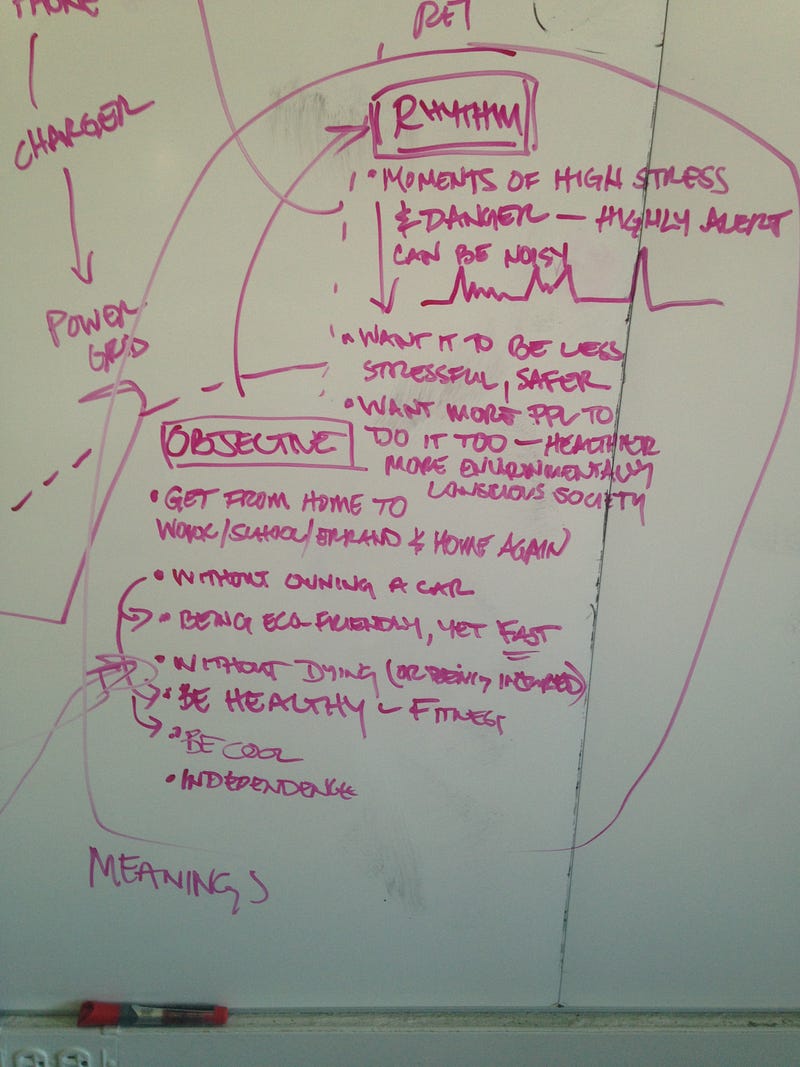 PHONE
CHARGER
POWER
GRID
RET
RHYTHM
• MOMENTS OF HIGH STRESS
& DANGER — HIGHLY ALERT
CAN BE NOISY
• WANT IT TO BE LESS
STRESSFUL, SAFER
• WANT MORE PPL TO
DO IT TOO — HEALTHIER
MORE ENVIRONMENTALLY
CONSCIOUS SOCIETY
OBJECTIVE
• GET FROM HOME TO
WORK/SCHOOL/ERRAND & HOME AGAIN
• WITHOUT OWNING A CAR
• BEING ECO-FRIENDLY, YET FAST
• WITHOUT DYING (OR BEING INJURED)
• BE HEALTHY – FITNESS
• BE COOL
• INDEPENDENCE
MEANINGS